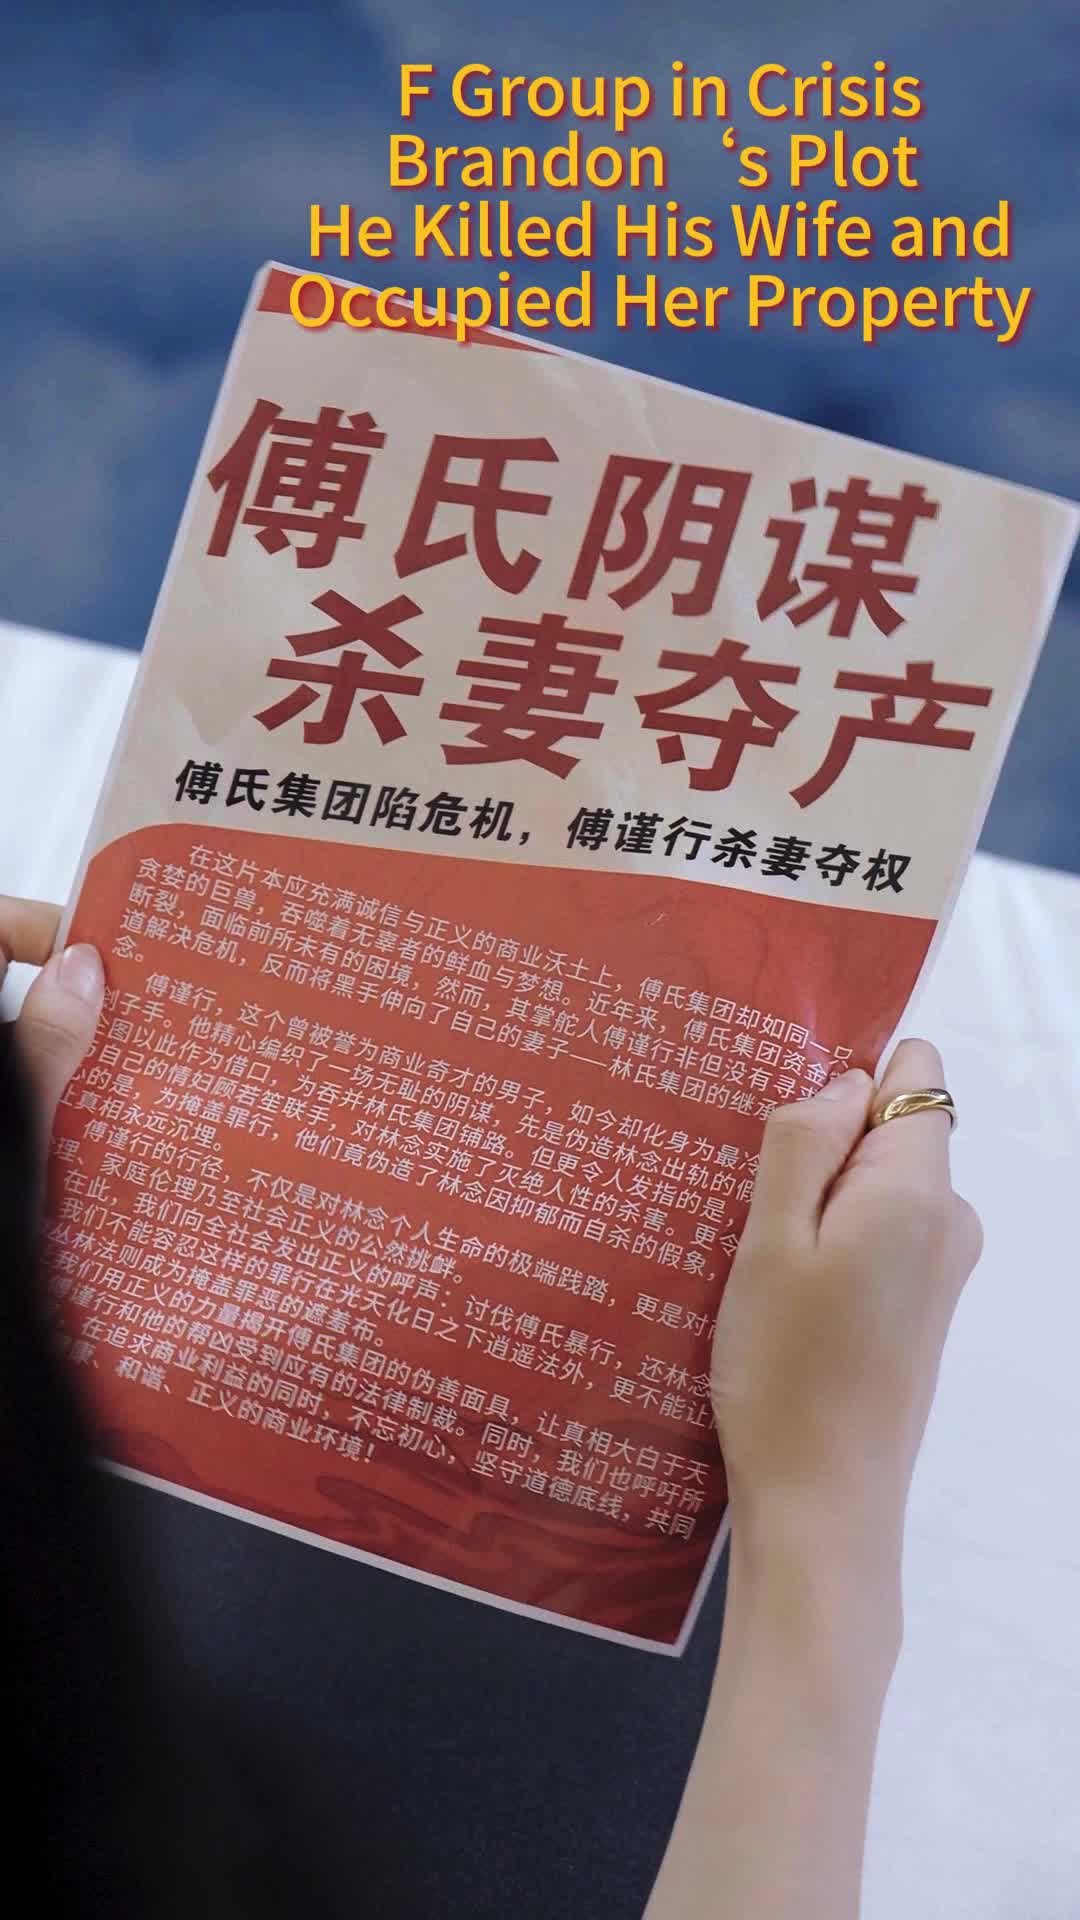 F Group in Crisis
Brandon ‘s Plot
He Killed His Wife and
Occupied Her Property
傅氏阴谋
杀妻夺产
傅氏集团陷危机，傅谨行杀妻夺权
在这片本应充满诚信与正义的商业沃土上，傅氏集团却如同一只
贪婪的巨兽，吞噬着无辜者的鲜血与梦想。近年来，傅氏集团资金
断裂，面临前所未有的困境，然而，其掌舵人傅谨行非但没有寻求
道解决危机，反而将黑手伸向了自己的妻子——林氏集团的继承
念。
傅谨行，这个曾被誉为商业奇才的男子，如今却化身为最冷
刽子手。他精心编织了一场无耻的阴谋，先是伪造林念出轨的假
企图以此作为借口，为吞并林氏集团铺路。但更令人发指的是，
与自己的情妇顾若笙联手，对林念实施了灭绝人性的杀害。更令
心的是，为掩盖罪行，他们竟伪造了林念因抑郁而自杀的假象，
让真相永远沉埋。
傅谨行的行径，不仅是对林念个人生命的极端践踏，更是对商
理、家庭伦理乃至社会正义的公然挑衅。
在此，我们向全社会发出正义的呼声：讨伐傅氏暴行，还林念
我们不能容忍这样的罪行在光天化日之下逍遥法外，更不能让
丛林法则成为掩盖罪恶的遮羞布。
让我们用正义的力量揭开傅氏集团的伪善面具，让真相大白于天
傅谨行和他的帮凶受到应有的法律制裁。同时，我们也呼吁所
，在追求商业利益的同时，不忘初心，坚守道德底线，共同
健康、和谐、正义的商业环境！